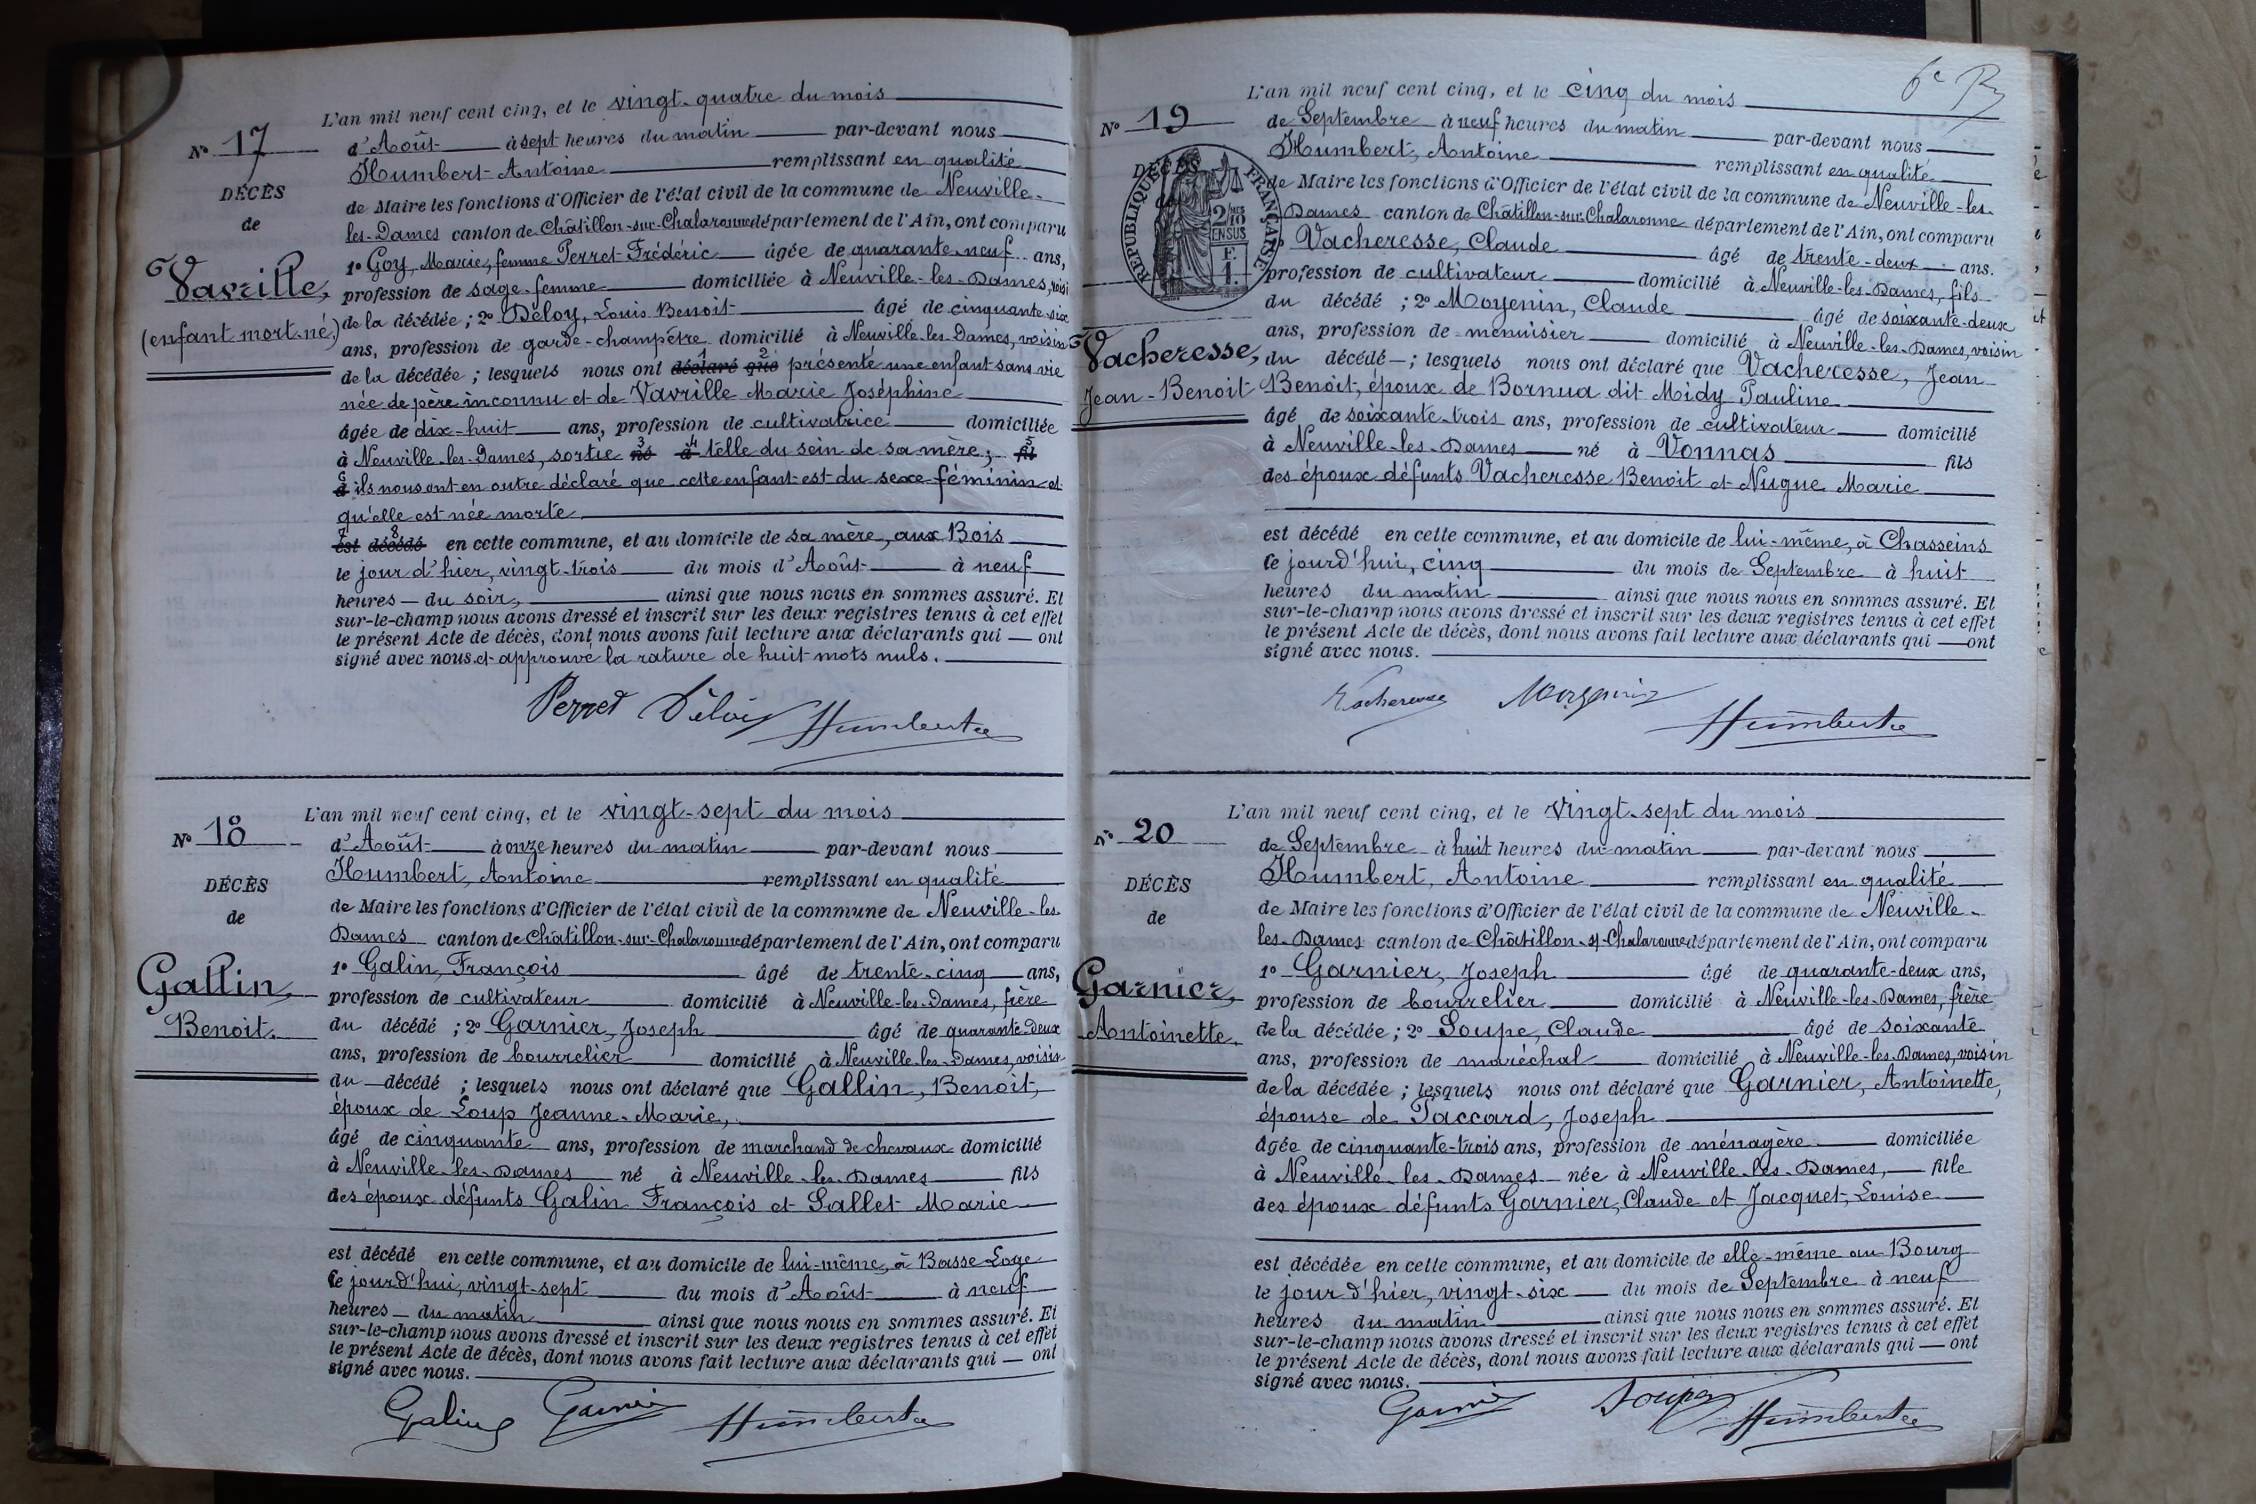 L'an mil neuf cent cinq, et le vingt-quatre du mois
N° 17
d'Août à sept heures du matin par-devant nous
Humbert Antoine remplissant en qualité
DÉCÈS
de Maire les fonctions d'Officier de l'état civil de la commune de Neuville-
de
les-Dames canton de Châtillon-sur-Chalaronne département de l'Ain, ont comparu
1° Goy, Marie, femme Perret Frédéric âgée de quarante-neuf ans,
Vavrille,
profession de sage-femme domiciliée à Neuville-les-Dames, voisi
(enfant mort-né)
de la décédée ; 2° Déloy, Louis Benoit âgé de cinquante-six
ans, profession de garde-champêtre domicilié à Neuville-les-Dames, voisin
de la décédée ; lesquels nous ont déclaré 1 que 2 présenté une enfant sans vie
née de père inconnu et de Vavrille Marie Joséphine
âgée de dix-huit ans, profession de cultivatrice domiciliée
à Neuville-les-Dames, sortie né 3 à 4 telle du sein de sa mère ; fil 5
à 6 ils nous ont en outre déclaré que cette enfant est du sexe féminin et
qu'elle est née morte
est 7 décédé 8 en cette commune, et au domicile de sa mère, aux Bois
le jour d'hier, vingt-trois du mois d'Août à neuf
heures du soir, ainsi que nous nous en sommes assuré. Et
sur-le-champ nous avons dressé et inscrit sur les deux registres tenus à cet effet
le présent Acte de décès, dont nous avons fait lecture aux déclarants qui — ont
signé avec nous et approuvé la rature de huit mots nuls.
Perret Déloy Humbert
L'an mil neuf cent cinq, et le vingt-sept du mois
N° 18
d'Août à onze heures du matin par-devant nous
Humbert, Antoine remplissant en qualité
DÉCÈS
de Maire les fonctions d'Officier de l'état civil de la commune de Neuville-les-
de
Dames canton de Châtillon-sur-Chalaronne département de l'Ain, ont comparu
1° Galin, François âgé de trente-cinq ans,
Gallin,
profession de cultivateur domicilié à Neuville-les-Dames, frère
Benoit.
du décédé ; 2° Garnier, Joseph âgé de quarante-deux
ans, profession de bourrelier domicilié à Neuville-les-Dames, voisin
du décédé ; lesquels nous ont déclaré que Gallin, Benoit,
époux de Loup Jeanne-Marie,
âgé de cinquante ans, profession de marchand de chevaux domicilié
à Neuville-les-Dames né à Neuville-les-Dames fils
des époux défunts Galin François et Sallet Marie
est décédé en cette commune, et au domicile de lui-même, à Basse Loge
ce jourd'hui, vingt-sept du mois d'Août à neuf
heures du matin ainsi que nous nous en sommes assuré. Et
sur-le-champ nous avons dressé et inscrit sur les deux registres tenus à cet effet
le présent Acte de décès, dont nous avons fait lecture aux déclarants qui — ont
signé avec nous.
Galin Garnier Humbert
6e
L'an mil neuf cent cinq, et le cinq du mois
N° 19
de Septembre à neuf heures du matin par-devant nous
Humbert, Antoine remplissant en qualité
DÉCÈS
RÉPUBLIQUE FRANÇAISE
2/10 EN SUS
F.
1.
de Maire les fonctions d'Officier de l'état civil de la commune de Neuville-les-
Dames canton de Châtillon-sur-Chalaronne département de l'Ain, ont comparu
Vacheresse, Claude âgé de trente-deux ans.
profession de cultivateur domicilié à Neuville-les-Dames, fils
du décédé ; 2° Moyenin, Claude âgé de soixante-deux
ans, profession de menuisier domicilié à Neuville-les-Dames, voisin
Vacheresse,
du décédé — ; lesquels nous ont déclaré que Vacheresse, Jean
Jean-Benoit
Benoit, époux de Bornua dit Midy Pauline
âgé de soixante-trois ans, profession de cultivateur domicilié
à Neuville-les-Dames né à Vonnas fils
des époux défunts Vacheresse Benoit et Nugue Marie
est décédé en cette commune, et au domicile de lui-même, à Chasseins
ce jourd'hui, cinq du mois de Septembre à huit
heures du matin ainsi que nous nous en sommes assuré. Et
sur-le-champ nous avons dressé et inscrit sur les deux registres tenus à cet effet
le présent Acte de décès, dont nous avons fait lecture aux déclarants qui — ont
signé avec nous.
Vacheresse Moyenin Humbert
L'an mil neuf cent cinq, et le vingt-sept du mois
N° 20
de Septembre à huit heures du matin par-devant nous
Humbert, Antoine remplissant en qualité
DÉCÈS
de Maire les fonctions d'Officier de l'état civil de la commune de Neuville-
de
les-Dames canton de Châtillon-s/-Chalaronne département de l'Ain, ont comparu
1° Garnier, Joseph âgé de quarante-deux ans,
Garnier,
profession de bourrelier domicilié à Neuville-les-Dames, frère
Antoinette.
de la décédée ; 2° Soupe, Claude âgé de soixante
ans, profession de maréchal domicilié à Neuville-les-Dames, voisin
de la décédée ; lesquels nous ont déclaré que Garnier, Antoinette,
épouse de Paccard, Joseph
âgée de cinquante-trois ans, profession de ménagère domiciliée
à Neuville-les-Dames née à Neuville-les-Dames, fille
des époux défunts Garnier, Claude et Jacquet, Louise
est décédée en cette commune, et au domicile de elle-même au Bourg
le jour d'hier, vingt-six du mois de Septembre à neuf
heures du matin ainsi que nous nous en sommes assuré. Et
sur-le-champ nous avons dressé et inscrit sur les deux registres tenus à cet effet
le présent Acte de décès, dont nous avons fait lecture aux déclarants qui — ont
signé avec nous.
Garnier Soupe Humbert